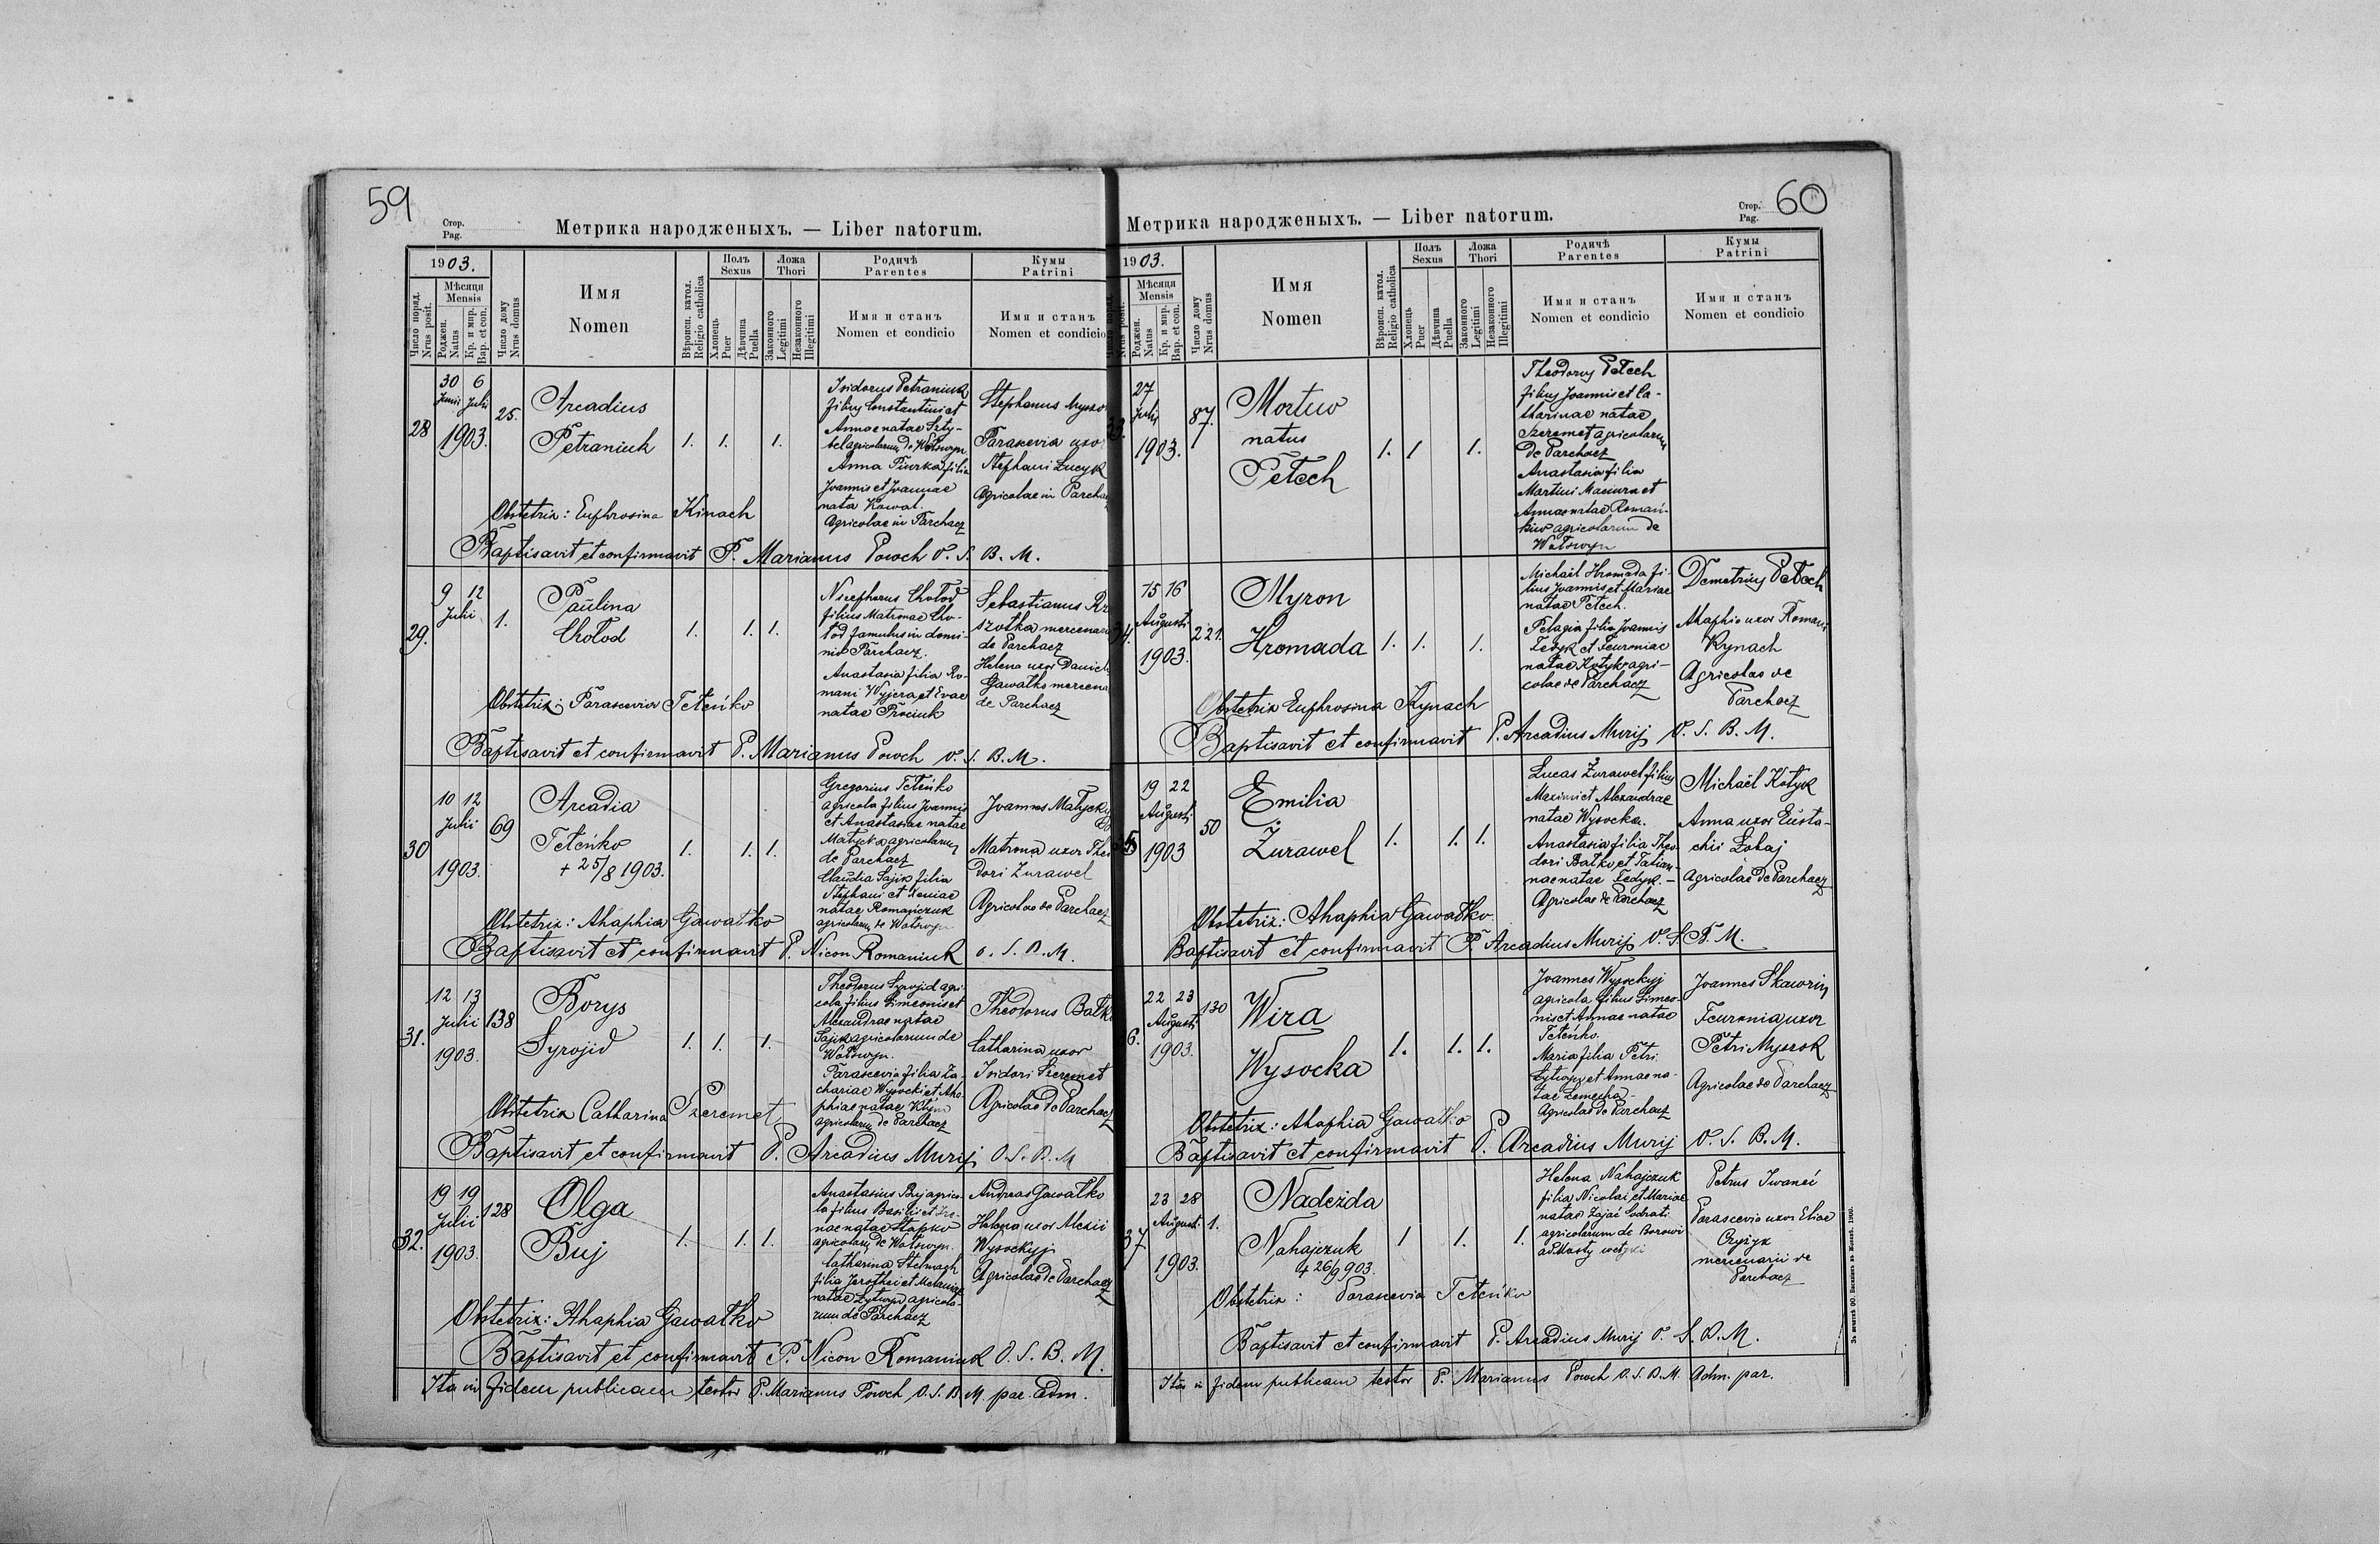 59
Стор.
Pag.
Метрика народженыхъ. — Liber natorum.
1903.
Число поряд.
Nrus posit.
Мѣсяця
Mensis
Роджен.
Natus
Кр. и мир.
Bap. et con.
Число дому
Nrus domus
Имя
Nomen
Вѣроисп. катол.
Religio catholica
Полъ
Sexus
Хлопець
Puer
Дѣвчина
Puella
Ложа
Thori
Законного
Legitimi
Незаконного
Illegitimi
Родичѣ
Parentes
Имя и станъ
Nomen et condicio
Кумы
Patrini
Имя и станъ
Nomen et condicio
28
30 6
Junii Julii
1903.
25.
Arcadius
Petraniuk
1. 1. 1.
Isidorus Petraniuk
filius Constantini et
Annae natae Szty-
bel agricolarum de Wołswyn
Anna Piurka filia
Joannis et Joannae
nata Kowal.
Agricolae in Parchacz
Stephanus
Parascevia uxo
Stephani Łucyk
Agricolae in Parcha
Obstetrix: Euphrosina Kinach
Baptisavit et confirmavit P. Marianus Powch O. S. B. M.
29.
9 12
Julii
1.
Paulina
Chołod
1. 1. 1.
Nicephorus Chołod
filius Matronae Cho-
łod famulus in domi-
nio Parchacz.
Anastasia filia Ro-
mani Wyjcra et Evae
natae Prociuk
Sebastianus Rz
szotka mercenari
de Parchacz
Helena uxor Daniel
Gawałko mercena
de Parchacz
Obstetrix: Parascevia Teteńko
Baptisavit et confirmavit P. Marianus Powch O. S. B. M.
30
10 12
Julii
1903.
69
Arcadia
Teteńko
+ 25/8 1903.
1. 1. 1.
Gregorius Teteńko
agricola filius Joannis
et Anastasiae natae
Małycka agricolarum
de Parchacz
Claudia Sajik filia
Stephani et Xeniae
natae Romańczuk
agricolarum de Wołswyn
Joannes Małycky
Matrona uxor Theo
dori Żurawel
Agricolae de Parchacz
Obstetrix: Ahaphia Gawałko
Baptisavit et confirmavit P. Nicon Romaniuk O. S. B. M.
31.
12 13
Julii
1903.
138
Borys
Syrojid
1. 1. 1.
Theodorus Syrojid agri-
cola filius Simeonis et
Alexandrae natae
Sajik agricolarum de
Wołswyn.
Parascevia filia Za-
chariae Wysocki et Aha-
phiae natae Kłym
agricolarum de Parchacz
Theodorus Bałk
Catharina uxor
Isidori Szeremet
Agricolae de Parchacz
Obstetrix Catharina Szeremet
Baptisavit et confirmavit P. Arcadius Murij O. S. B. M
32.
19 19
Julii
1903.
128
Olga
Buj
1. 1. 1.
Anastasius Buj agrico-
la filius Basilii et Ire-
nae natae Stapko
agricolarum de Wołswyn.
Catharina Stelmagh
filia Jerothei et Melaniae
natae Łytwyn agricola-
rum de Parchacz
Andreas Gawałko
Helena uxor Alexii
Wysockyj
Agricolae de Parchacz
Obstetrix: Ahaphia Gawałko
Baptisavit et confirmavit P. Nicon Romaniuk O. S. B. M.
Ita in fidem publicam testor P. Marianus Powch O. S. B. M. par. Adm.
Стор.
Pag.
60
Метрика народженыхъ. — Liber natorum.
1903.
Число поряд.
Nrus posit.
Мѣсяця
Mensis
Роджен.
Natus
Кр. и мир.
Bap. et con.
Число дому
Nrus domus
Имя
Nomen
Вѣроисп. катол.
Religio catholica
Полъ
Sexus
Хлопець
Puer
Дѣвчина
Puella
Ложа
Thori
Законного
Legitimi
Незаконного
Illegitimi
Родичѣ
Parentes
Имя и станъ
Nomen et condicio
Кумы
Patrini
Имя и станъ
Nomen et condicio
33.
27
Julii
1903.
87.
Mortuo
natus
Petech
1. 1 1.
Theodorus Petech
filius Joannis et Ca-
tharinae natae
Szeremet agricolarum
de Parchacz
Anastasia filia
Martini Maciura et
Annae natae Romań-
kiw agricolarum de
Wołswyn
34.
15 16
Augusti
1903.
221.
Myron
Hromada
1. 1. 1.
Michaël Hromada fi-
lius Joannis et Mariae
natae Petech.
Pelagia filia Joannis
Fedyk et Feuroniae
natae Kotyk agri-
colae de Parchacz
Demetrius Petech
Ahaphia uxor Romani
Kynach
Agricolae de
Parchacz
Obstetrix Euphrosina Kynach
Baptisavit et confirmavit P. Arcadius Murij O. S. B. M.
19 22
Augusti
1903
50
Emilia
Żurawel
1. 1. 1.
Lucas Żurawel filius
Maximi et Alexandrae
natae Wysocka.
Anastasia filia Theo-
dori Bałko et Tatian-
nae natae Fedyk. -
Agricolae de Parchacz
Michaël Kotyk
Anna uxor Eusta-
chii Łobaj
Agricolae de Parchacz
Obstetrix: Ahaphia Gawałko.
Baptisavit et confirmavit P. Arcadius Murij O. S. B. M.
6.
22 23
Augusti
1903.
130
Wira
Wysocka
1. 1. 1.
Joannes Wysockyj
agricola filius Simeo-
nis et Annae natae
Teteńko.
Maria filia Petri
Łytwyn et Annae na-
tae Zemecha -
Agricolae de Parchacz
Joannes
Feuronia uxor
Petri Myszok
Agricolae de Parchacz
Obstetrix: Ahaphia Gawałko
Baptisavit et confirmavit P. Arcadius Murij O. S. B. M.
37.
23 28
Augusti
1903.
1.
Nadeżda
Nahajczuk
+ 26/9 903.
1 1. 1.
Helena Nahajczuk
filia Nicolai et Mariae
natae Zając
agricolarum de Borowi
ad Mosty
Petrus Iwaneć
Parascevia uxor Eliae
Czyżyk
mercenarii de
Parchacz
Obstetrix: Parascevia Teteńko
Baptisavit et confirmavit P. Arcadius Murij O. S. B. M.
Ita in fidem publicam testor P. Marianus Powch O. S. B. M. Adm. par.